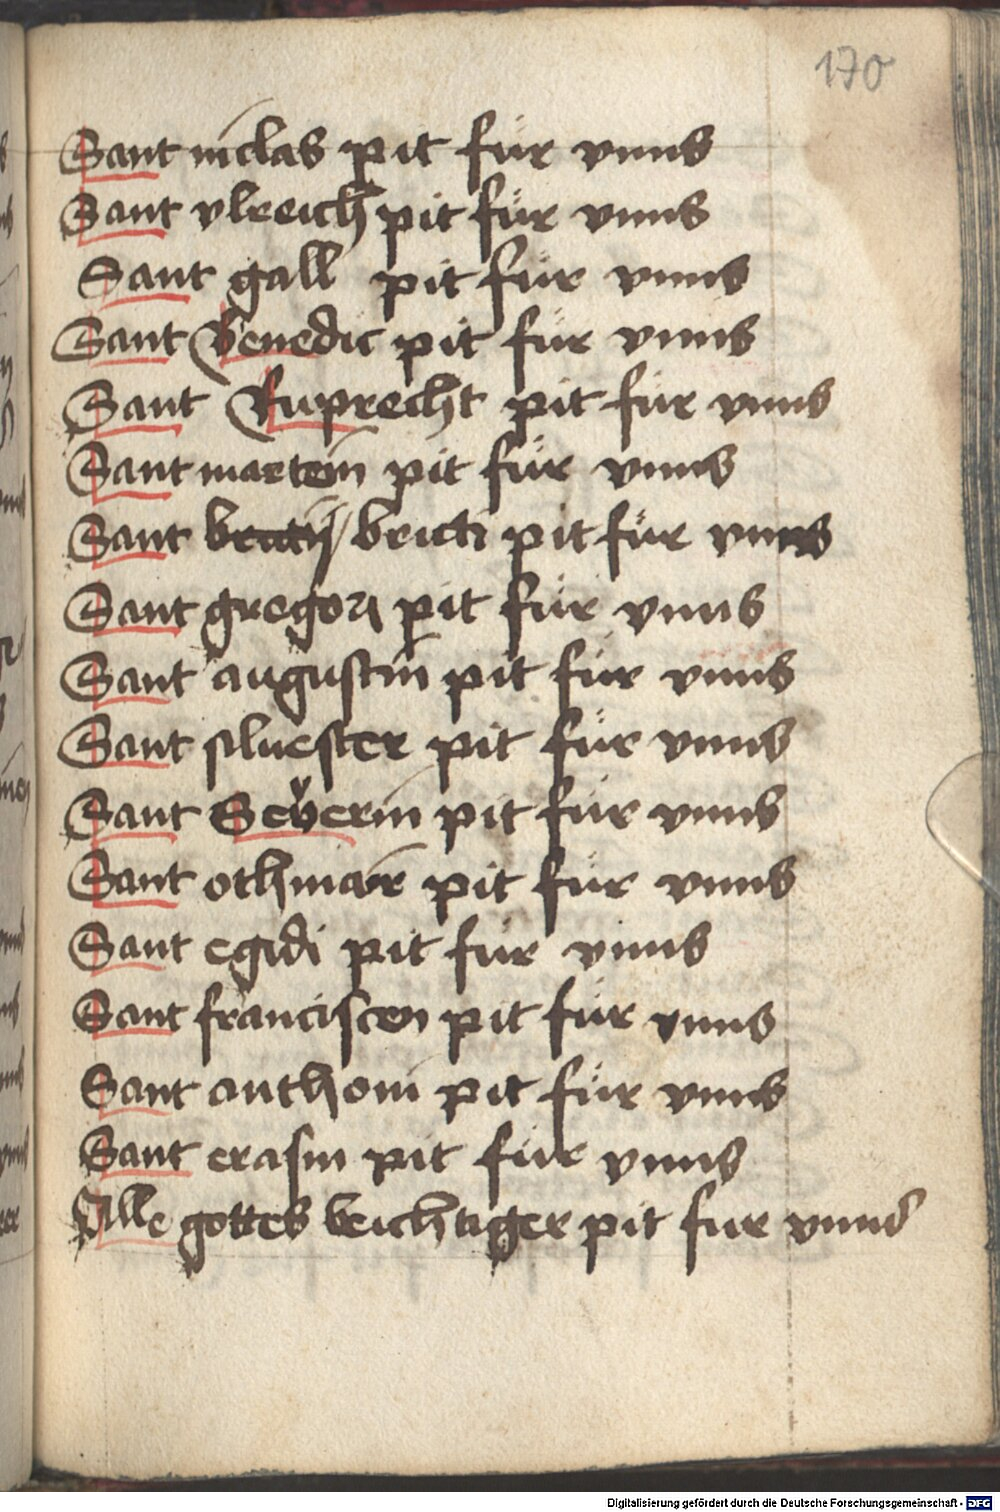 170
Sant niclas pit für vnns
Sant vlreich pit für vnns
Sant gall pit für vnns
Sant Benedic pit für vnns
Sant Ruprecht pit für vnns
Sant martein pit für vnns
Sant bricti pit für vnns
Sant gregori pit für vnns
Sant augustin pit für vnns
Sant siluester pit für vnns
Sant Seüerin pit für vnns
Sant othmar pit für vnns
Sant egidi pit für vnns
Sant franciscen pit für vnns
Sant anthoni pit für vnns
Sant erasm pit für vnns
Alle gottes beichtiger pit für vnns
Digitalisierung gefördert durch die Deutsche Forschungsgemeinschaft - DFG